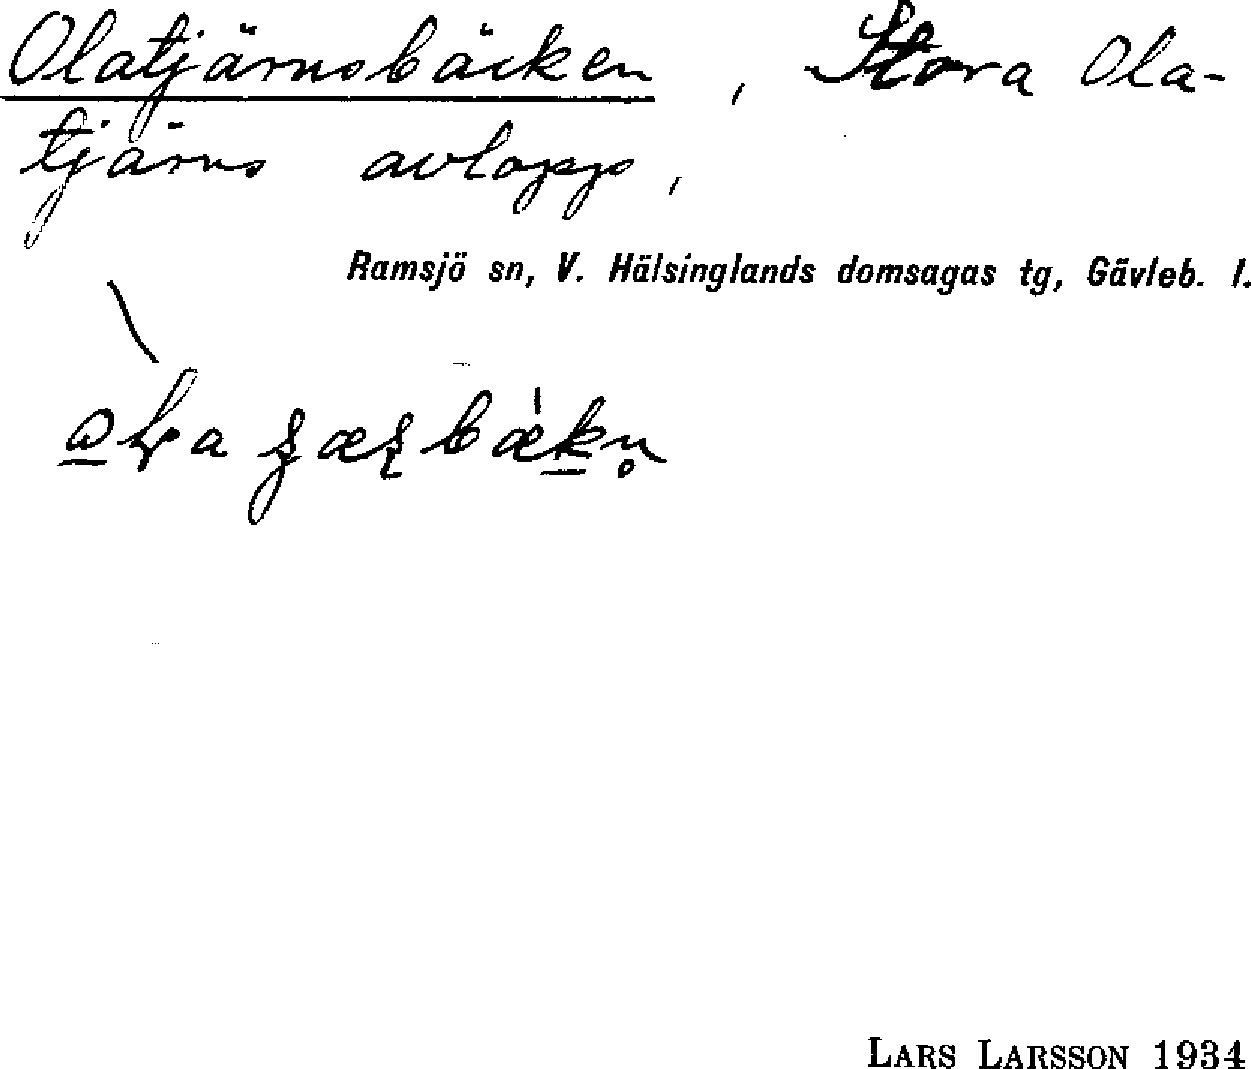 Olatjärnsbäcken, Stora Ola-
tjärns avlopp,
Ramsjö sn, V. Hälsinglands domsagas tg, Gävleb. l.
LARS LARSSON 1934